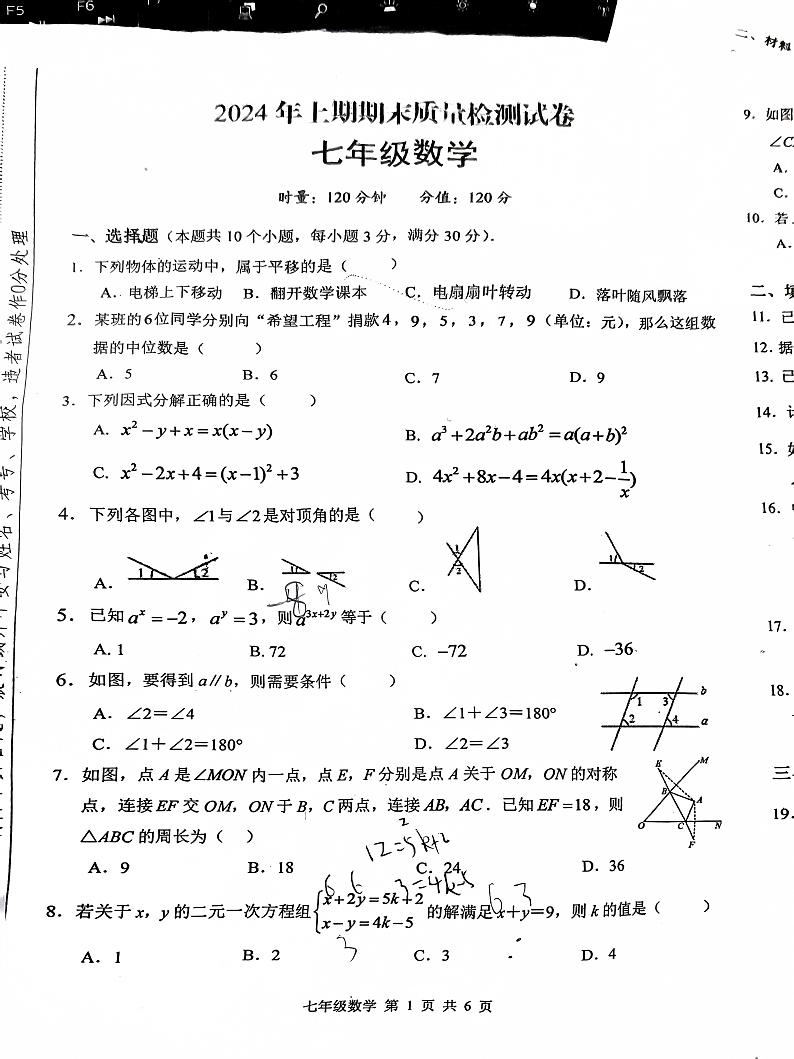 F5
F6
2024年上期期末质量检测试卷
七年级数学
时量：120分钟 分值：120分
一、选择题（本题共10个小题，每小题3分，满分30分）.
1．下列物体的运动中，属于平移的是（ ）
A．电梯上下移动 B．翻开数学课本 C．电扇扇叶转动 D．落叶随风飘落
2．某班的6位同学分别向“希望工程”捐款4，9，5，3，7，9（单位：元），那么这组数
据的中位数是（ ）
A．5 B．6 C．7 D．9
3．下列因式分解正确的是（ ）
A．x²－y+x=x(x－y) B．a³+2a²b+ab²=a(a+b)²
C．x²－2x+4=(x－1)²+3 D．4x²+8x－4=4x(x+2－1/x)
4．下列各图中，∠1与∠2是对顶角的是（ ）
1 2 1 2 1 2 1 2
A． B． C． D．
5．已知aˣ=－2，aʸ=3，则a³ˣ⁺²ʸ等于（ ）
A. 1 B. 72 C. －72 D. －36
6．如图，要得到a∥b，则需要条件（ ）
A．∠2＝∠4 B．∠1＋∠3＝180°
C．∠1＋∠2＝180° D．∠2＝∠3
1 3 b
2 4 a
7．如图，点A是∠MON内一点，点E，F分别是点A关于OM，ON的对称
点，连接EF交OM，ON于B，C两点，连接AB，AC．已知EF=18，则
△ABC的周长为（ ）
E M
B A
O C N
F
A．9 B．18 C．24 D．36
12=5k+2
3=4k-5
8．若关于x，y的二元一次方程组{x+2y=5k+2
x－y=4k－5 的解满足x+y=9，则k的值是（ ）
6 6 6 3
3
A．1 B．2 C．3 D．4
七年级数学 第 1 页 共 6 页
9．如图
A．
C．
10．若
A．
二、填
11．已
12．据
13．已
14．
15．如
16．
17．
18．
三
19．